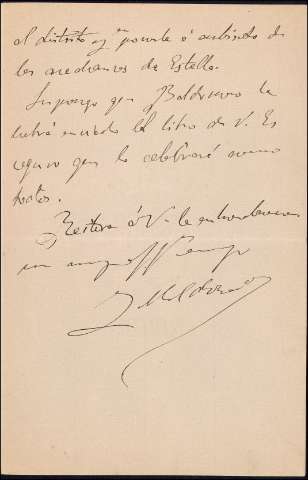 el distrito y en ponerle á cubierto de
los medianos de Estella.
Supongo que Baldomero le
habrá enviado el libro de V. Es
seguro que lo celebrará como
todos.
Reitera á V. la enhorabuena
su amigo